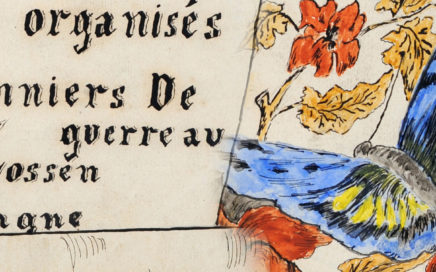 organisés
nniers De
guerre au
ossen
agne